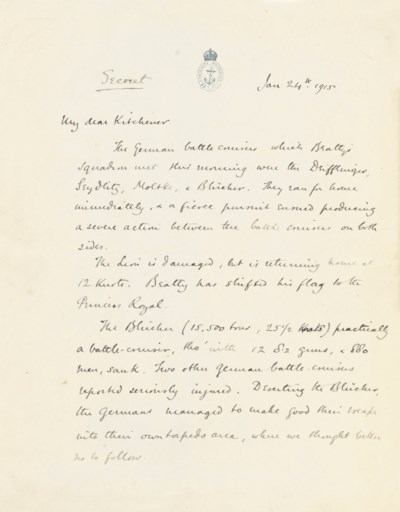 Secret
Jan 24th 1915
My dear Kitchener
The German battle cruisers which Beatty's
squadron met this morning were the Derfflinger,
Seydlitz, Moltke, & Blücher. They ran for home
immediately, & a fierce pursuit ensued producing
a severe action between the battle cruisers on both
sides.
The Lion is damaged, but is returning home at
12 Knots. Beatty has shifted his flag to the
Princess Royal.
The Blücher (15,500 tons, 25½ knots) practically
a battle-cruiser, tho' with 12 8.2 guns, & 880
men, sank. Two other German battle-cruisers
reported seriously injured. Deserting the Blücher,
the Germans managed to make good their escape
into their own torpedo area, where we thought better
not to follow